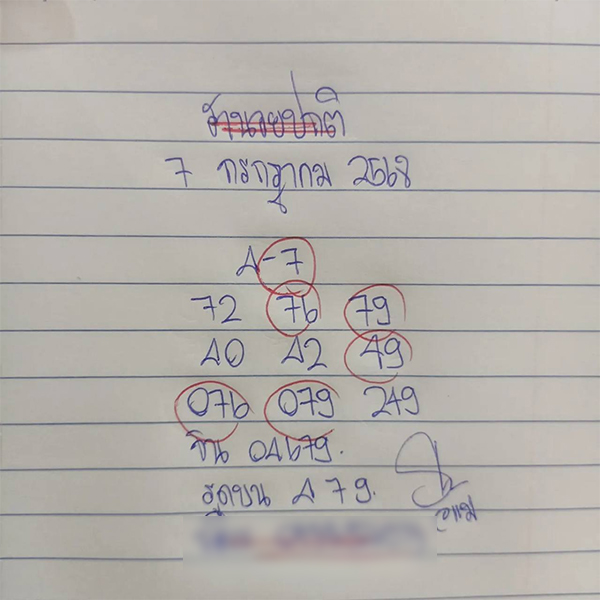 ฮานอยปกติ
7 กรกฎาคม 2568
4-7
72 76 79
40 42 49
076 079 249
วิน 04679.
รูดบน 4 7 9.